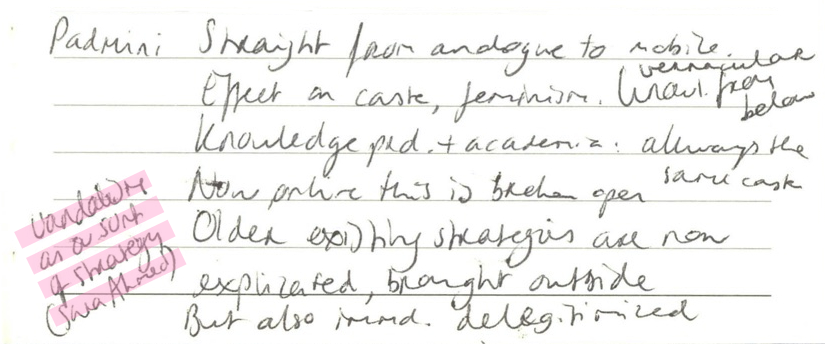 Padmini Straight from analogue to mobile.
Effect on caste, feminism. vernacular
from below
Knowledge prod. + academia: allways the
same caste
Now online this is broken open
Older existing strategies are now
explicated, brought outside
But also immed. delegitimized
Vandalism
as a sort
of strategy
(Sara Ahmed)